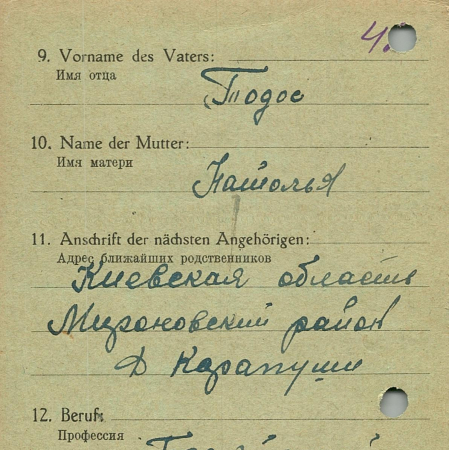 4.
9. Vorname des Vaters:
Имя отца
Тодос
10. Name der Mutter:
Имя матери
Натолья
11. Anschrift der nächsten Angehörigen:
Адрес ближайших родственников
Киевская область
Мироновский район
Д Карапуши
12. Beruf:
Профессия